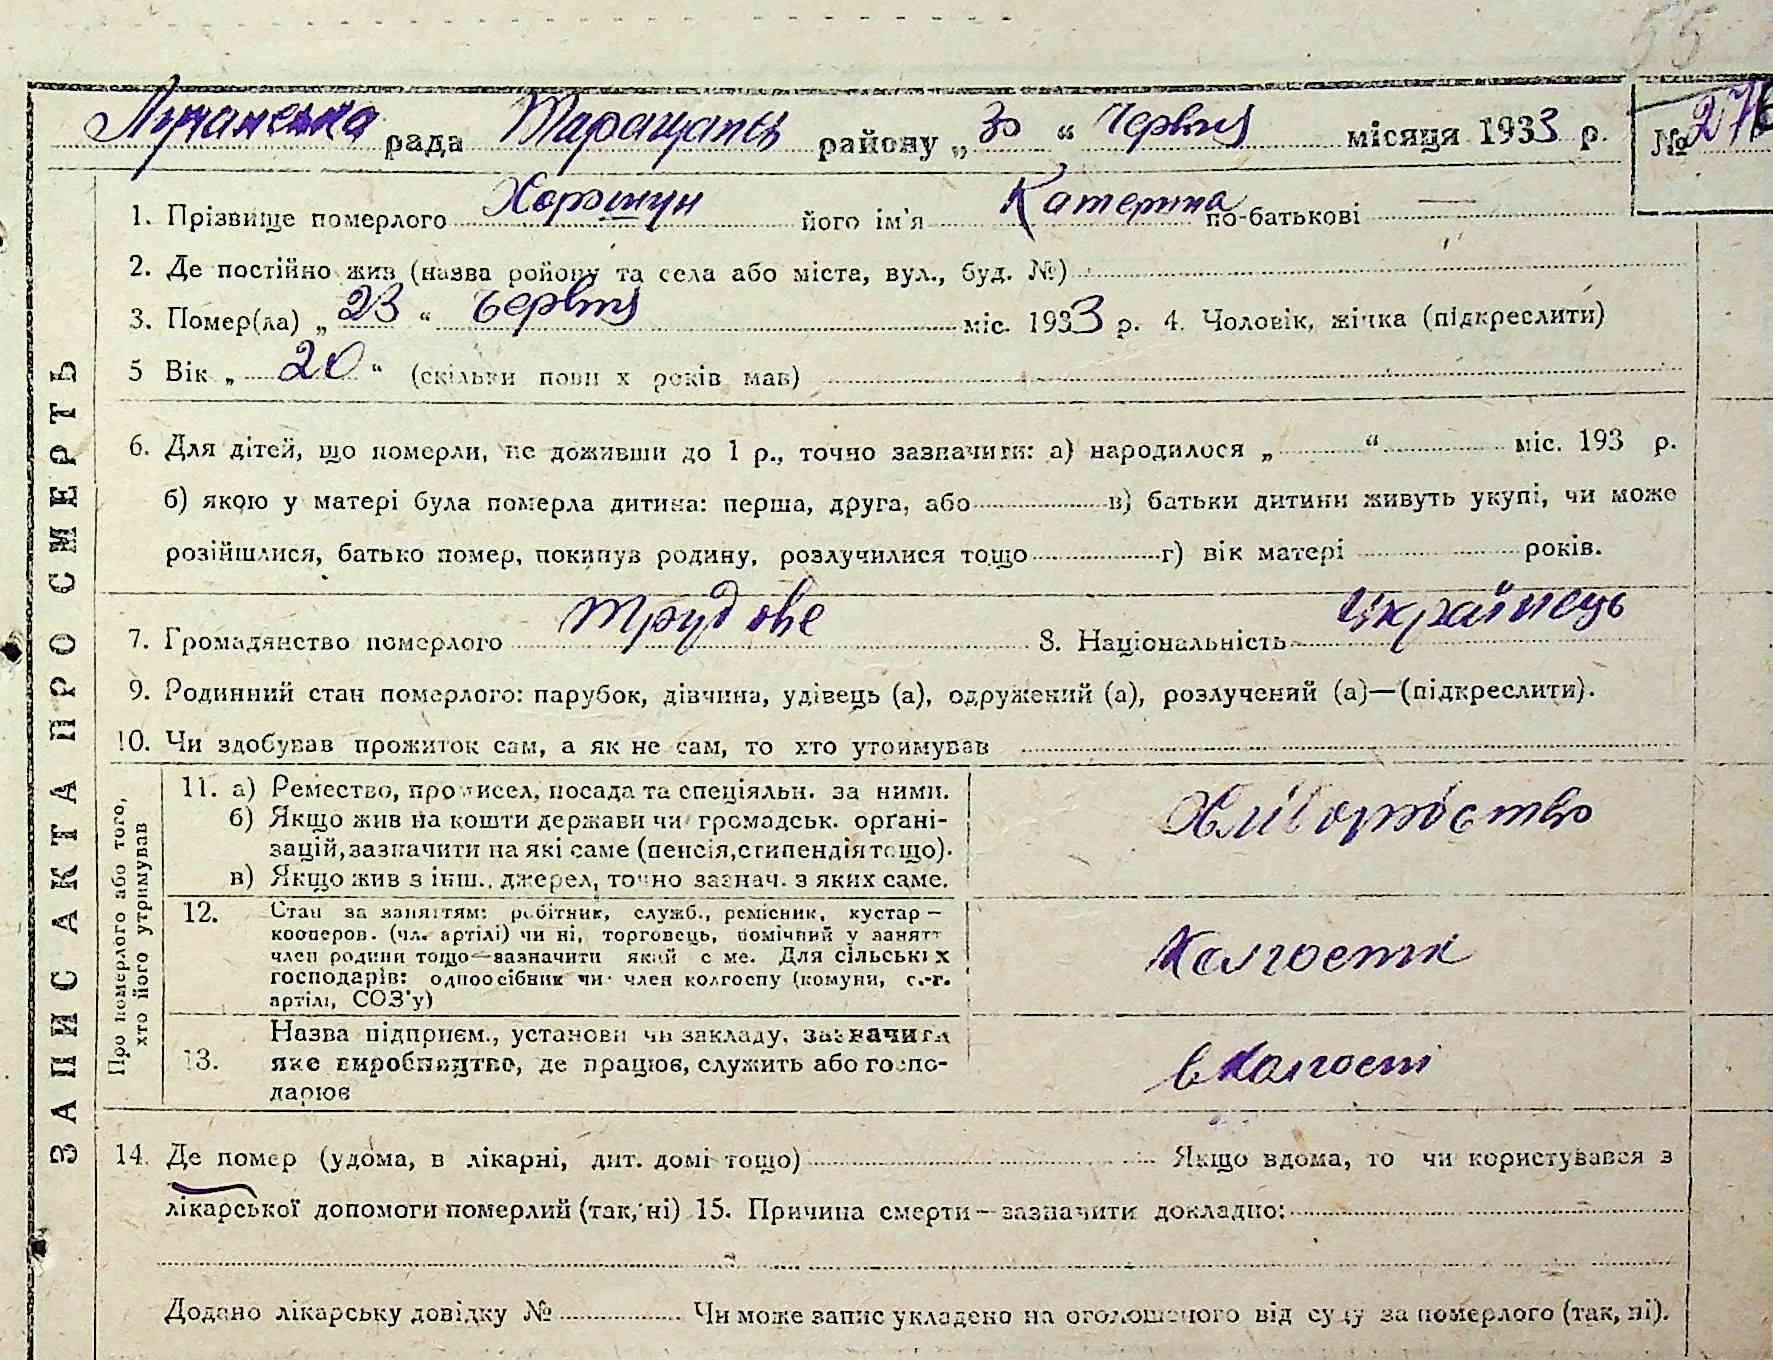 55
Лучанська рада Таращансь району „ 30 “ Червня місяця 1933 р. № 271
1. Прізвище померлого Коршун його ім'я Катерина по-батькові —
2. Де постійно жив (назва району та села або міста, вул., буд. №)
3. Помер(ла) „ 23 “ Червня міс. 1933 р. 4. Чоловік, жінка (підкреслити)
5 Вік „ 20 “ (скільки повн х років мав)
6. Для дітей, що померли, не доживши до 1 р., точно зазначити: а) народилося „ “ міс. 193 р.
б) якою у матері була померла дитина: перша, друга, або в) батьки дитини живуть укупі, чи може
розійшлися, батько помер, покинув родину, розлучилися тощо г) вік матері років.
7. Громадянство померлого трудове 8. Національність Українець
9. Родинний стан померлого: парубок, дівчина, удівець (а), одружений (а), розлучений (а)—(підкреслити).
10. Чи здобував прожиток сам, а як не сам, то хто утримував
ЗАПИС АКТА ПРО СМЕРТЬ
Про померлого або того,
хто його утримував
11. а) Ремество, промисел, посада та спеціяльн. за ними.
б) Якщо жив на кошти держави чи громадськ. орґані-
зацій, зазначити на які саме (пенсія, стипендія тощо).
в) Якщо жив з інш. джерел, точно зазнач. з яких саме.
Хліборобство
12. Стан за заняттям: робітник, служб., ремісник, кустар —
кооперов. (чл. артілі) чи ні, торговець, помічний у занятт
член родини тощо—зазначити який с ме. Для сільськіх
господарів: одноосібник чи член колгоспу (комуни, с.-г.
артілі, СОЗ'у)
Колгоспн
13. Назва підприєм., установи чи закладу, зазначити
яке виробництво, де працює, служить або госпо-
дарює
в Колгоспі
14. Де помер (удома, в лікарні, дит. домі тощо) Якщо вдома, то чи користувався з
лікарської допомоги померлий (так, ні) 15. Причина смерти—зазначити докладно:
Додано лікарську довідку № Чи може запис укладено на оголошеного від суду за померлого (так, ні).